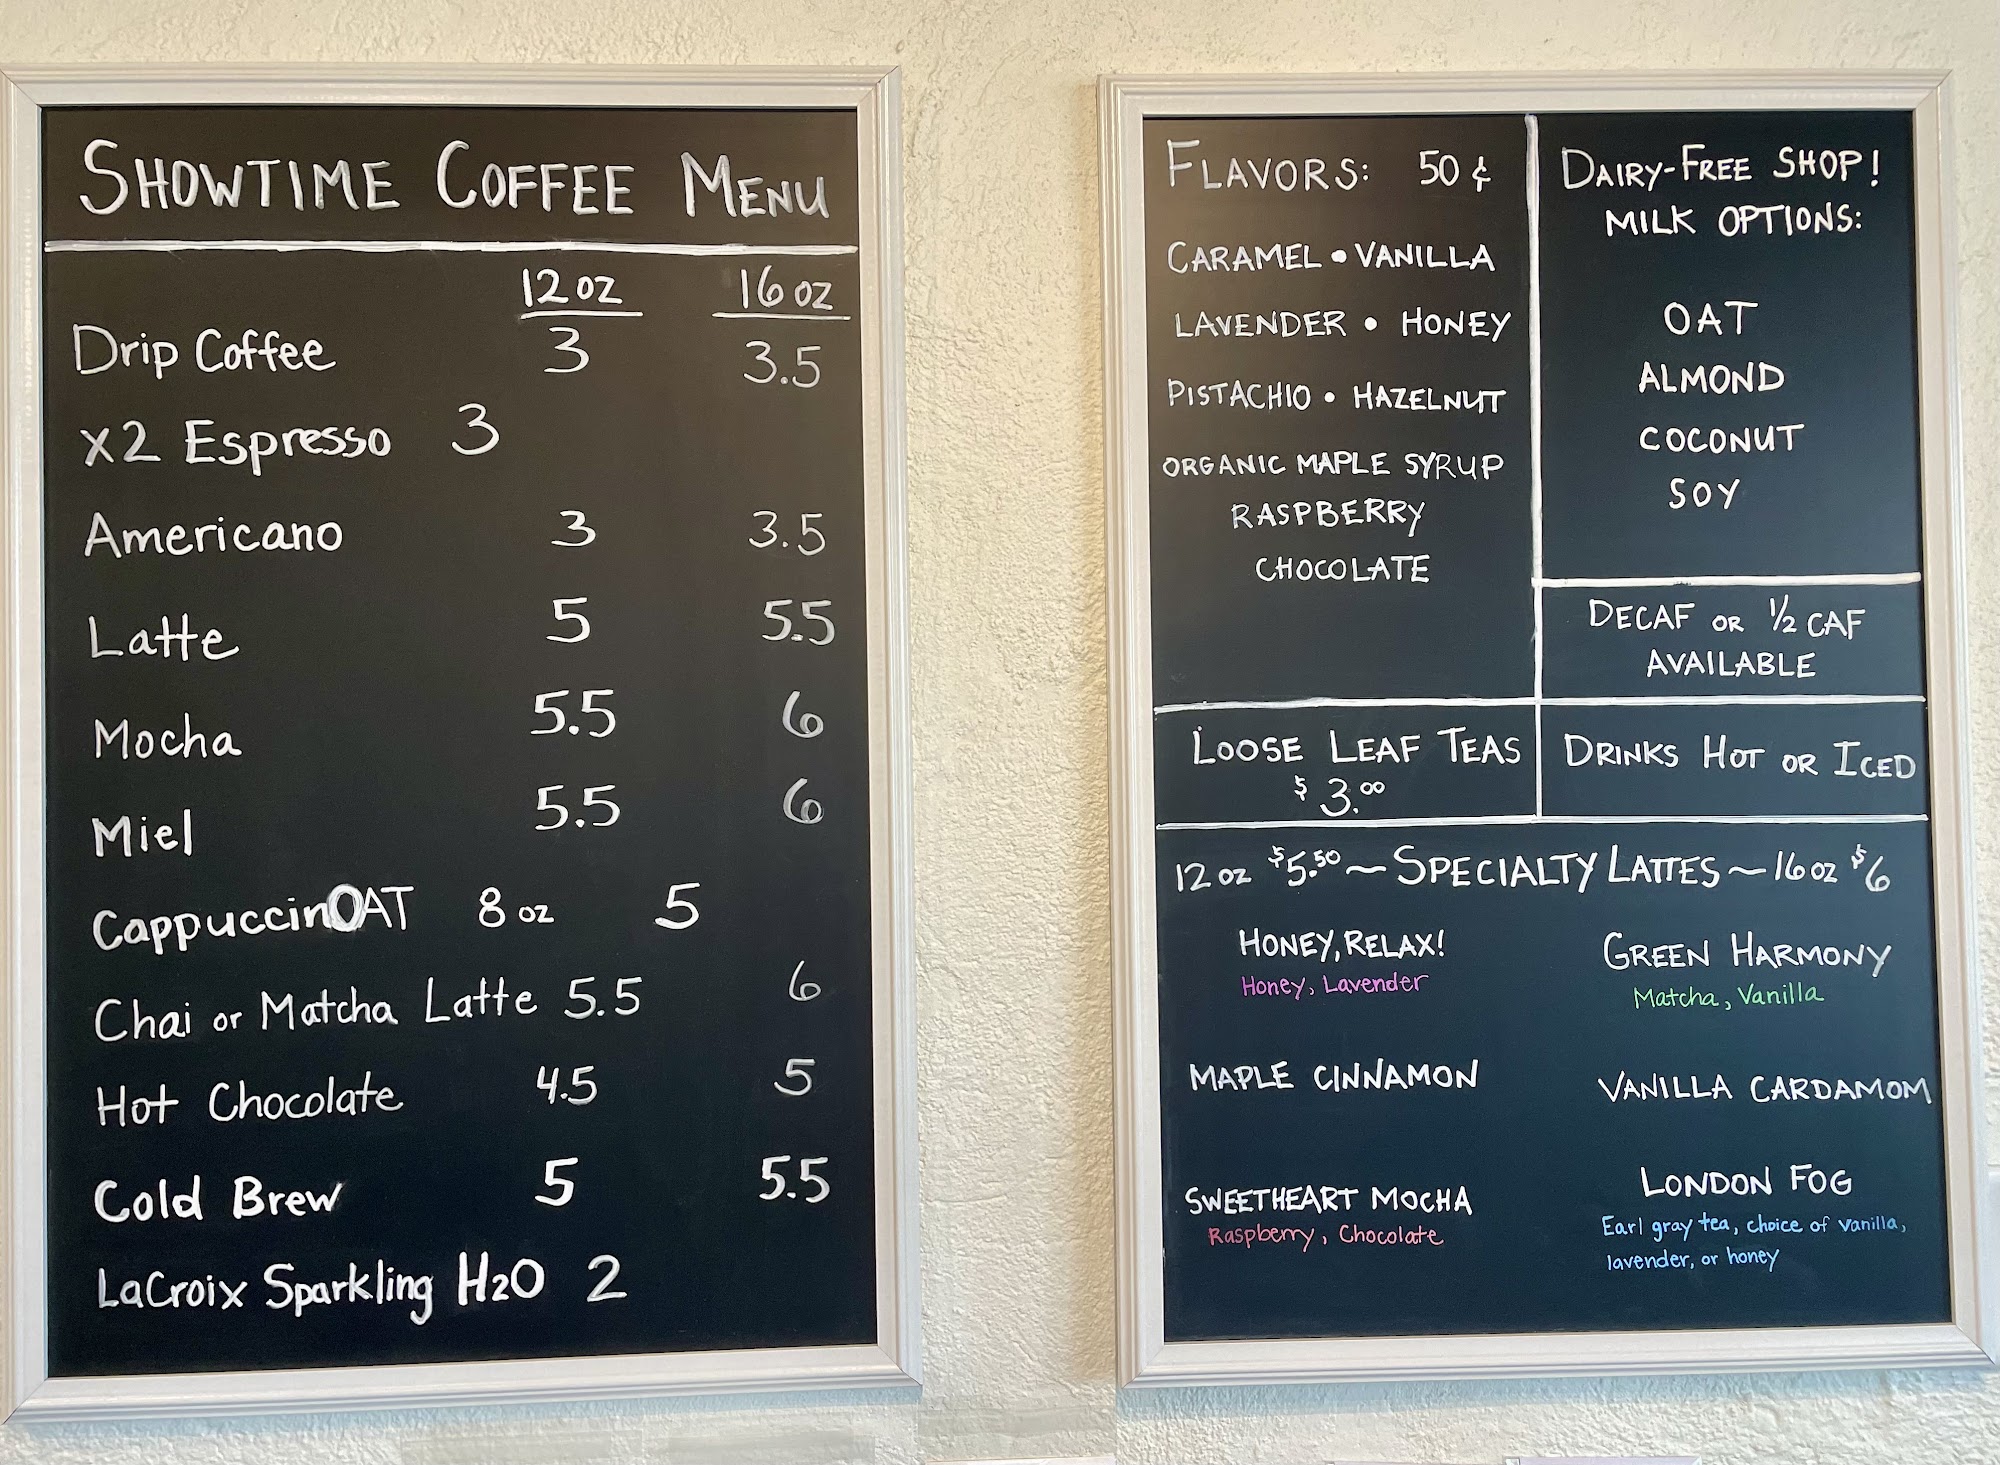 SHOWTIME COFFEE MENU
12 oz 16 oz
Drip Coffee 3 3.5
x2 Espresso 3
Americano 3 3.5
Latte 5 5.5
Mocha 5.5 6
Miel 5.5 6
CappuccinOAT 8 oz 5
Chai or Matcha Latte 5.5 6
Hot Chocolate 4.5 5
Cold Brew 5 5.5
LaCroix Sparkling H2O 2
FLAVORS: 50¢
CARAMEL • VANILLA
LAVENDER • HONEY
PISTACHIO • HAZELNUT
ORGANIC MAPLE SYRUP
RASPBERRY
CHOCOLATE
DAIRY-FREE SHOP!
MILK OPTIONS:
OAT
ALMOND
COCONUT
SOY
DECAF OR 1/2 CAF
AVAILABLE
LOOSE LEAF TEAS
$3.00
DRINKS HOT OR ICED
12 oz $5.50 ~ SPECIALTY LATTES ~ 16 oz $6
HONEY, RELAX!
Honey, Lavender
GREEN HARMONY
Matcha, Vanilla
MAPLE CINNAMON
VANILLA CARDAMOM
SWEETHEART MOCHA
Raspberry, Chocolate
LONDON FOG
Earl gray tea, choice of vanilla,
lavender, or honey